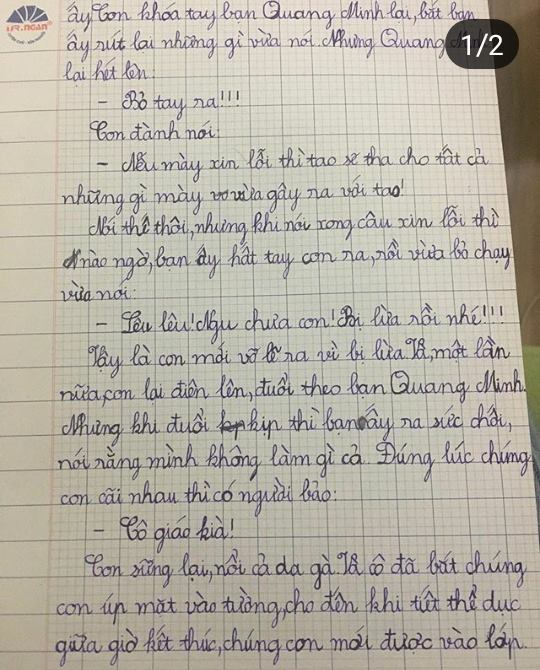 ấy. Con khóa tay bạn Quang Minh lại, bắt bạn
1/2
ấy rút lại những gì vừa nói. Nhưng Quang
lại hét lên:
- Bỏ tay ra!!!
Con đành nói:
- Nếu mày xin lỗi thì tao sẽ tha cho tất cả
những gì mày vừa gây ra với tao!
Nói thế thôi, nhưng khi nói xong câu xin lỗi thì
nào ngờ, bạn ấy hất tay con ra, rồi vừa bỏ chạy
vừa nói:
- Lêu lêu! Ngu chưa con! Bị lừa rồi nhé!!!
Vậy là con mới vỡ lẽ ra vì bị lừa. Và, một lần
nữa, con lại điên lên, đuổi theo bạn Quang Minh.
Nhưng khi đuổi kịp thì bạn ấy ra sức chối,
nói rằng mình không làm gì cả. Đúng lúc chúng
con cãi nhau thì có người bảo:
- Cô giáo kìa!
Con sững lại, nổi cả da gà. Và cô đã bắt chúng
con úp mặt vào tường, cho đến khi tiết thể dục
giữa giờ kết thúc, chúng con mới được vào lớp.